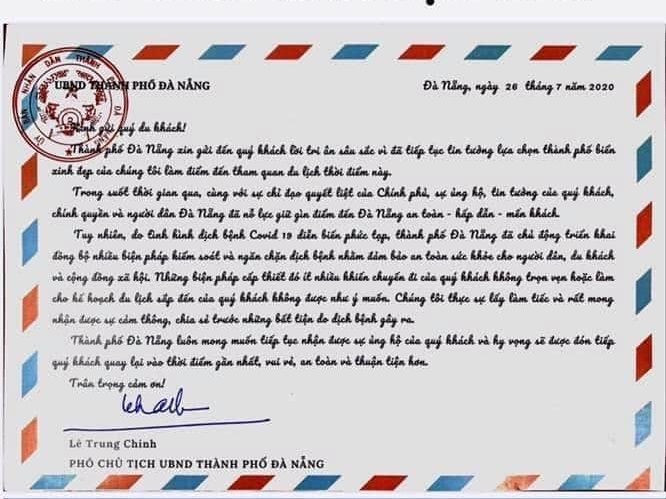 UBND THÀNH PHỐ ĐÀ NẴNG
Đà Nẵng, ngày 26 tháng 7 năm 2020
ỦY BAN NHÂN DÂN THÀNH PHỐ ĐÀ NẴNG
Kính gửi quý du khách!
Thành phố Đà Nẵng xin gửi đến quý khách lời tri ân sâu sắc vì đã tiếp tục tin tưởng lựa chọn thành phố biển
xinh đẹp của chúng tôi làm điểm đến tham quan du lịch thời điểm này.
Trong suốt thời gian qua, cùng với sự chỉ đạo quyết liệt của Chính phủ, sự ủng hộ, tin tưởng của quý khách,
chính quyền và người dân Đà Nẵng đã nỗ lực giữ gìn điểm đến Đà Nẵng an toàn - hấp dẫn - mến khách.
Tuy nhiên, do tình hình dịch bệnh Covid 19 diễn biến phức tạp, thành phố Đà Nẵng đã chủ động triển khai
đồng bộ nhiều biện pháp kiểm soát và ngăn chặn dịch bệnh nhằm đảm bảo an toàn sức khỏe cho người dân, du khách
và cộng đồng xã hội. Những biện pháp cấp thiết đó ít nhiều khiến chuyến đi của quý khách không trọn vẹn hoặc làm
cho kế hoạch du lịch sắp đến của quý khách không được như ý muốn. Chúng tôi thực sự lấy làm tiếc và rất mong
nhận được sự cảm thông, chia sẻ trước những bất tiện do dịch bệnh gây ra.
Thành phố Đà Nẵng luôn mong muốn tiếp tục nhận được sự ủng hộ của quý khách và hy vọng sẽ được đón tiếp
quý khách quay lại vào thời điểm gần nhất, vui vẻ, an toàn và thuận tiện hơn.
Trân trọng cảm ơn!
Lê Trung Chinh
PHÓ CHỦ TỊCH UBND THÀNH PHỐ ĐÀ NẴNG